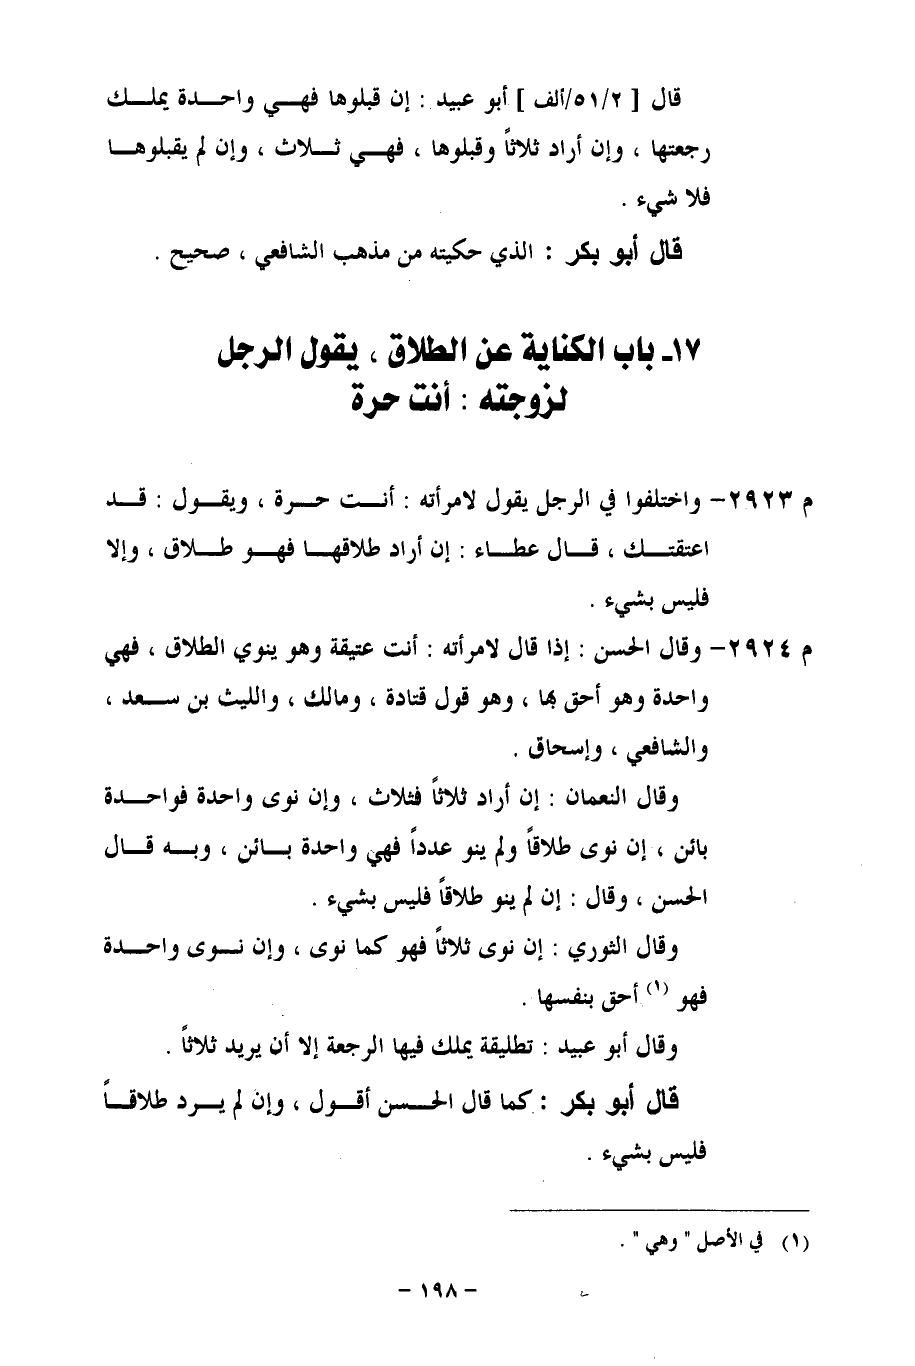 قال [ ٢/٥١/ألف ] أبو عبيد : إن قبلوها فهي واحدة يملك
رجعتها ، وإن أراد ثلاثاً وقبلوها ، فهي ثلاث ، وإن لم يقبلوها
فلا شيء .
قال أبو بكر : الذي حكيته من مذهب الشافعي ، صحيح .
١٧ـ باب الكناية عن الطلاق ، يقول الرجل
لزوجته : أنت حرة
م ٢٩٢٣– واختلفوا في الرجل يقول لامرأته : أنت حرة ، ويقول : قد
اعتقتك ، قال عطاء : إن أراد طلاقها فهو طلاق ، وإلا
فليس بشيء .
م ٢٩٢٤– وقال الحسن : إذا قال لامرأته : أنت عتيقة وهو ينوي الطلاق ، فهي
واحدة وهو أحق بها ، وهو قول قتادة ، ومالك ، والليث بن سعد ،
والشافعي ، وإسحاق .
وقال النعمان : إن أراد ثلاثاً فثلاث ، وإن نوى واحدة فواحدة
بائن ، إن نوى طلاقاً ولم ينو عدداً فهي واحدة بائن ، وبه قال
الحسن ، وقال : إن لم ينو طلاقاً فليس بشيء .
وقال الثوري : إن نوى ثلاثاً فهو كما نوى ، وإن نوى واحدة
فهو (١) أحق بنفسها .
وقال أبو عبيد : تطليقة يملك فيها الرجعة إلا أن يريد ثلاثاً .
قال أبو بكر : كما قال الحسن أقول ، وإن لم يرد طلاقاً
فليس بشيء .
(١) في الأصل " وهي " .
– ١٩٨ –